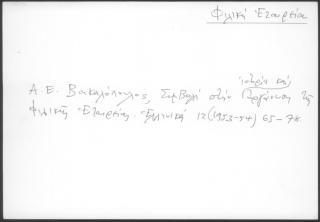 Φιλική Ἑταιρεία
Α. Ε. Βακαλόπουλος, Συμβολή στὴν ἱστορία καὶ ὀργάνωση τῆς
Φιλικῆς Ἑταιρείας. Ἑλληνικά 12 (1953-54) 65-78.